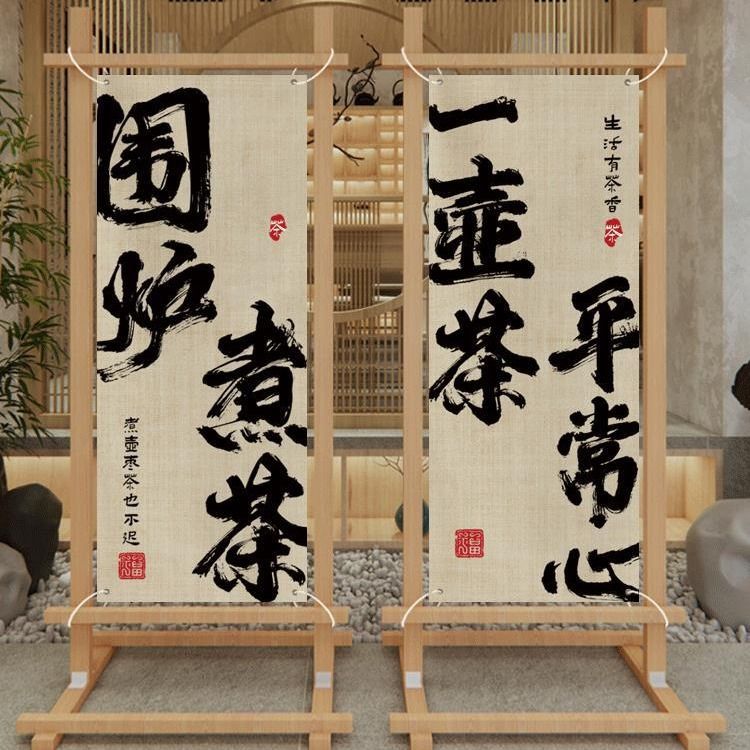 围炉
煮茶
茶
煮壶枣茶也不迟
一壶茶
平常心
生活有茶香
茶